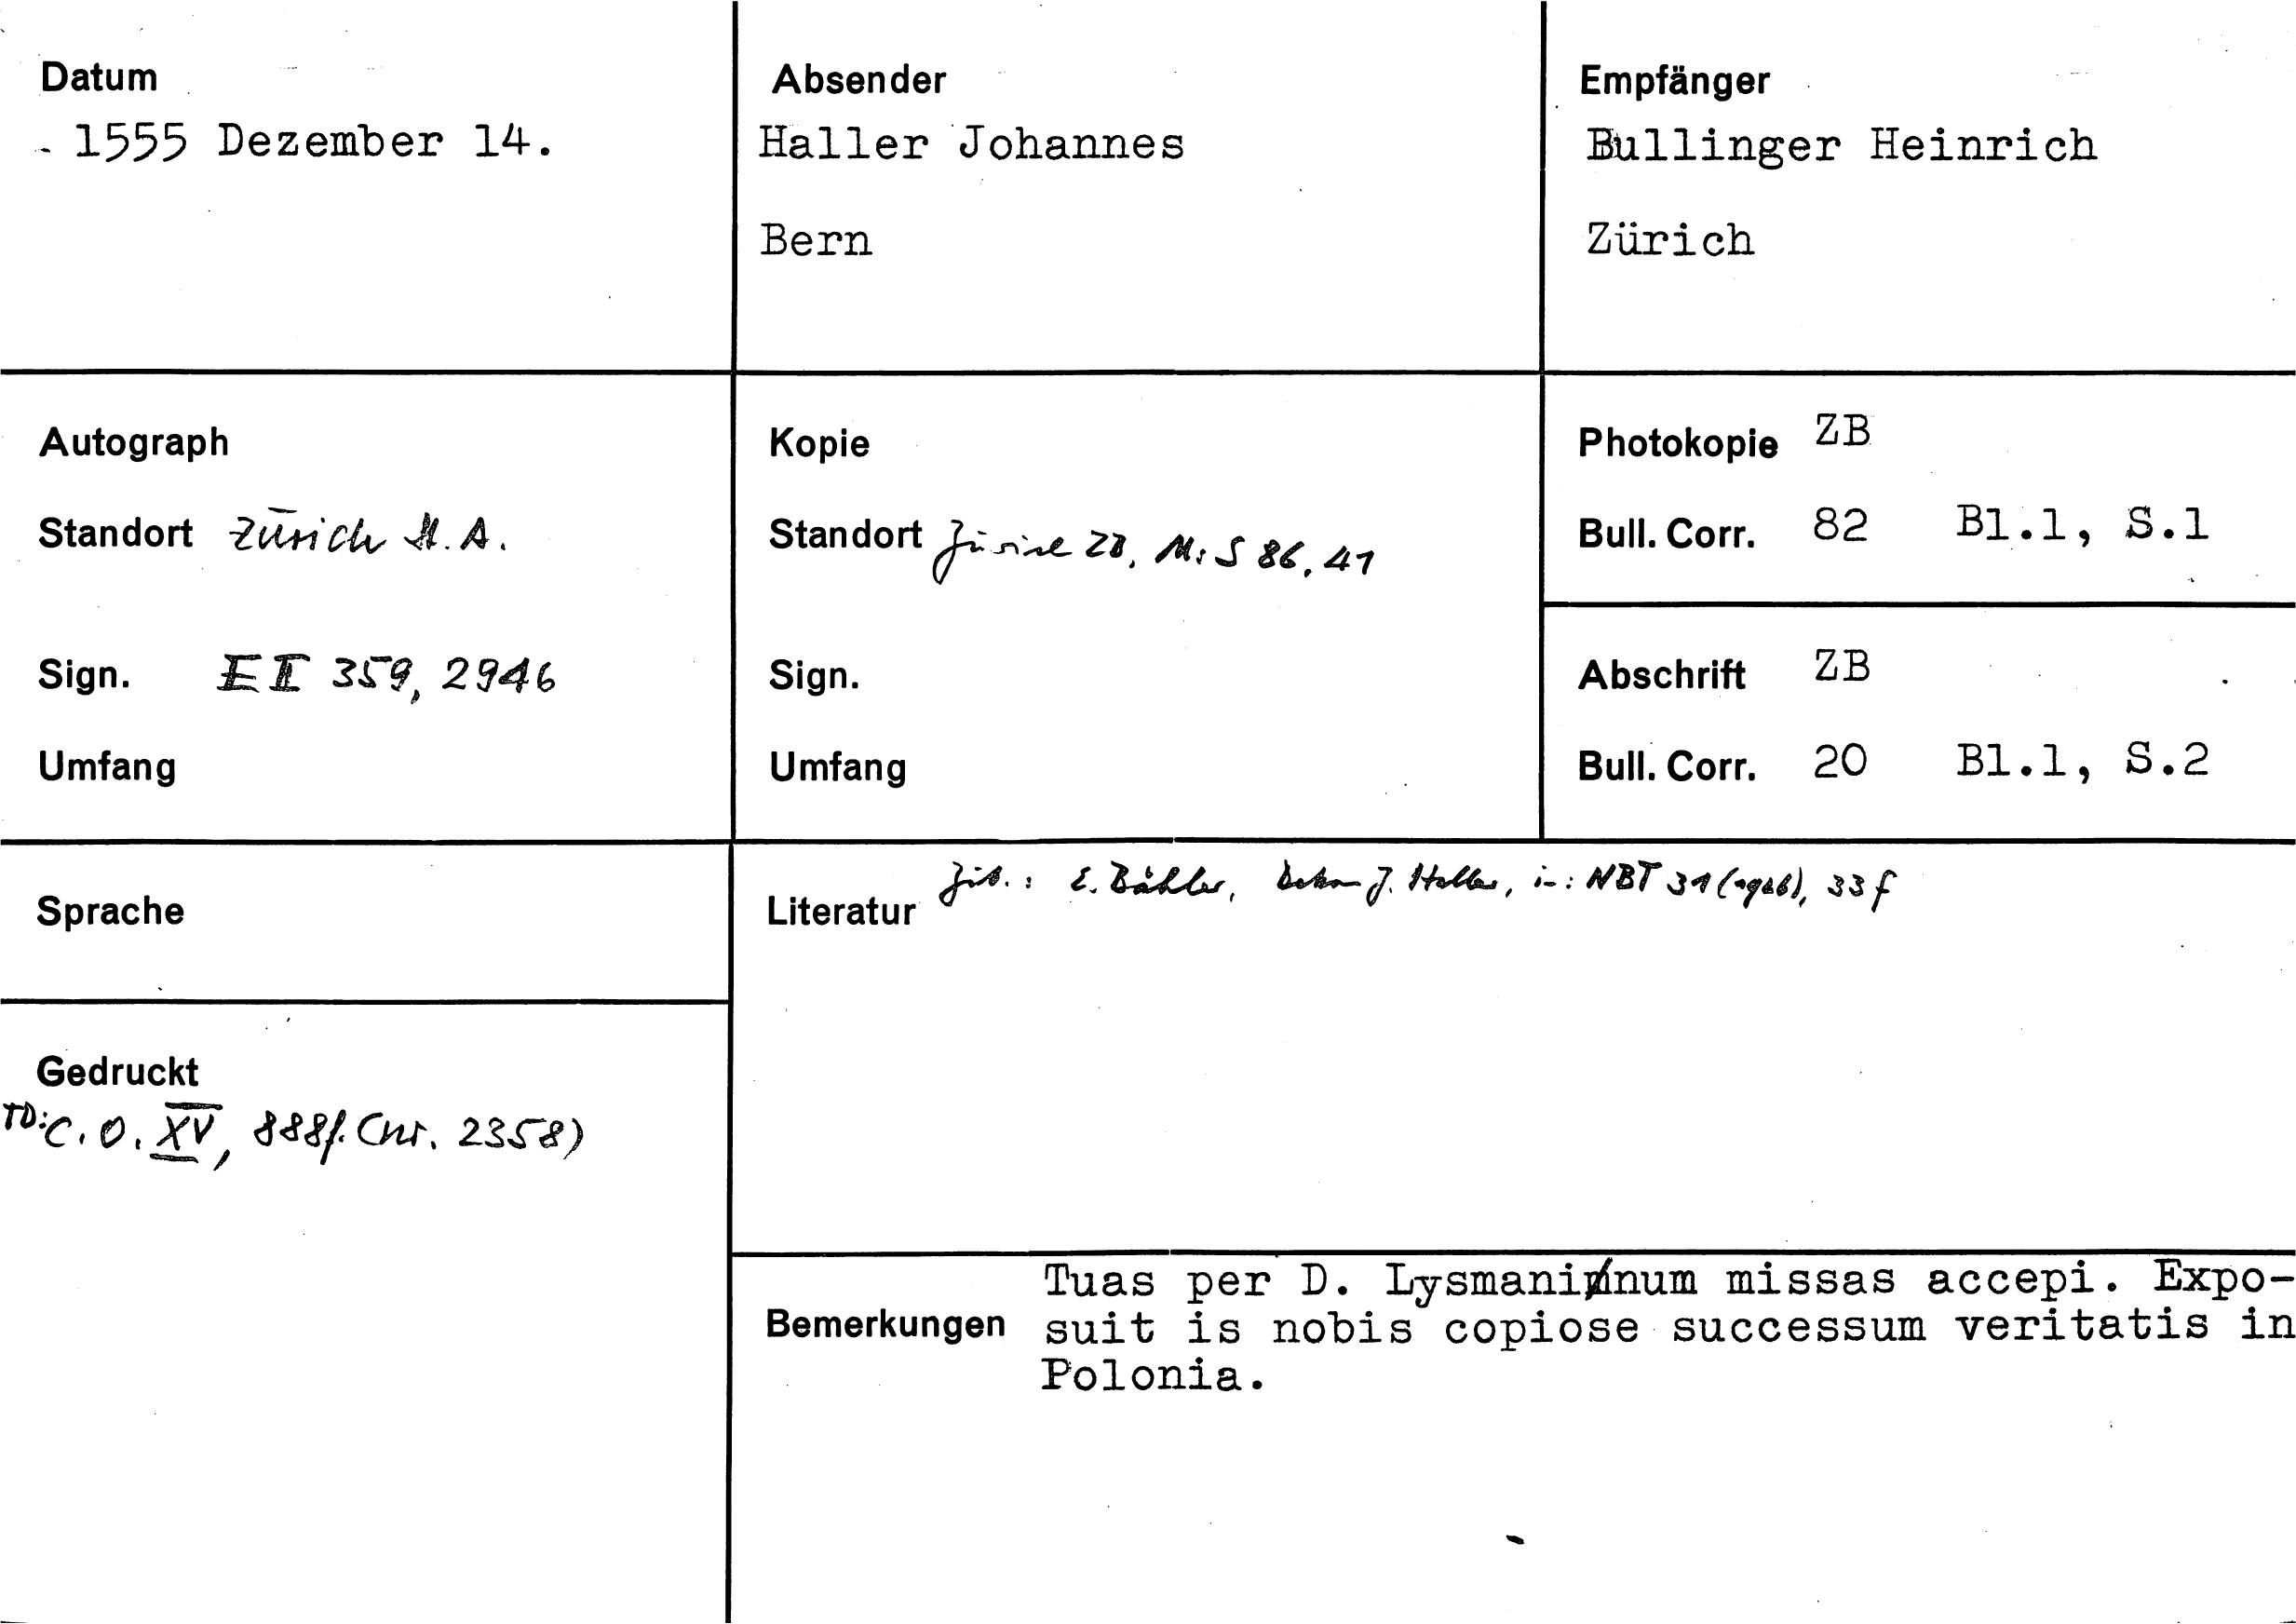 Datum
1555 Dezember 14.
Absender
Haller Johannes
Bern
Empfänger
Bullinger Heinrich
Zürich
Autograph
Standort Zürich St. A.
Sign. E II 359, 2946
Umfang
Kopie
Standort Zürich ZB, Ms S 86, 41
Sign.
Umfang
Photokopie ZB
Bull. Corr. 82 Bl.1, S.1
Abschrift ZB
Bull. Corr. 20 Bl.1, S.2
Sprache
Literatur Zit.: E. Bähler, Dekan J. Haller, in: NBT 31 (1926), 33f
Gedruckt
TD: C. O. XV, 888f. (nr. 2358)
Bemerkungen
Tuas per D. Lysmaninum missas accepi. Expo-
suit is nobis copiose successum veritatis in
Polonia.